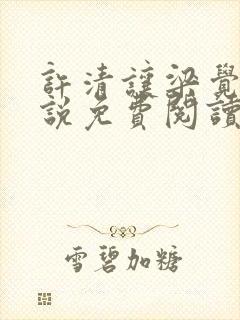 許清讓梁覺
說免費閱讀
雪碧加糖